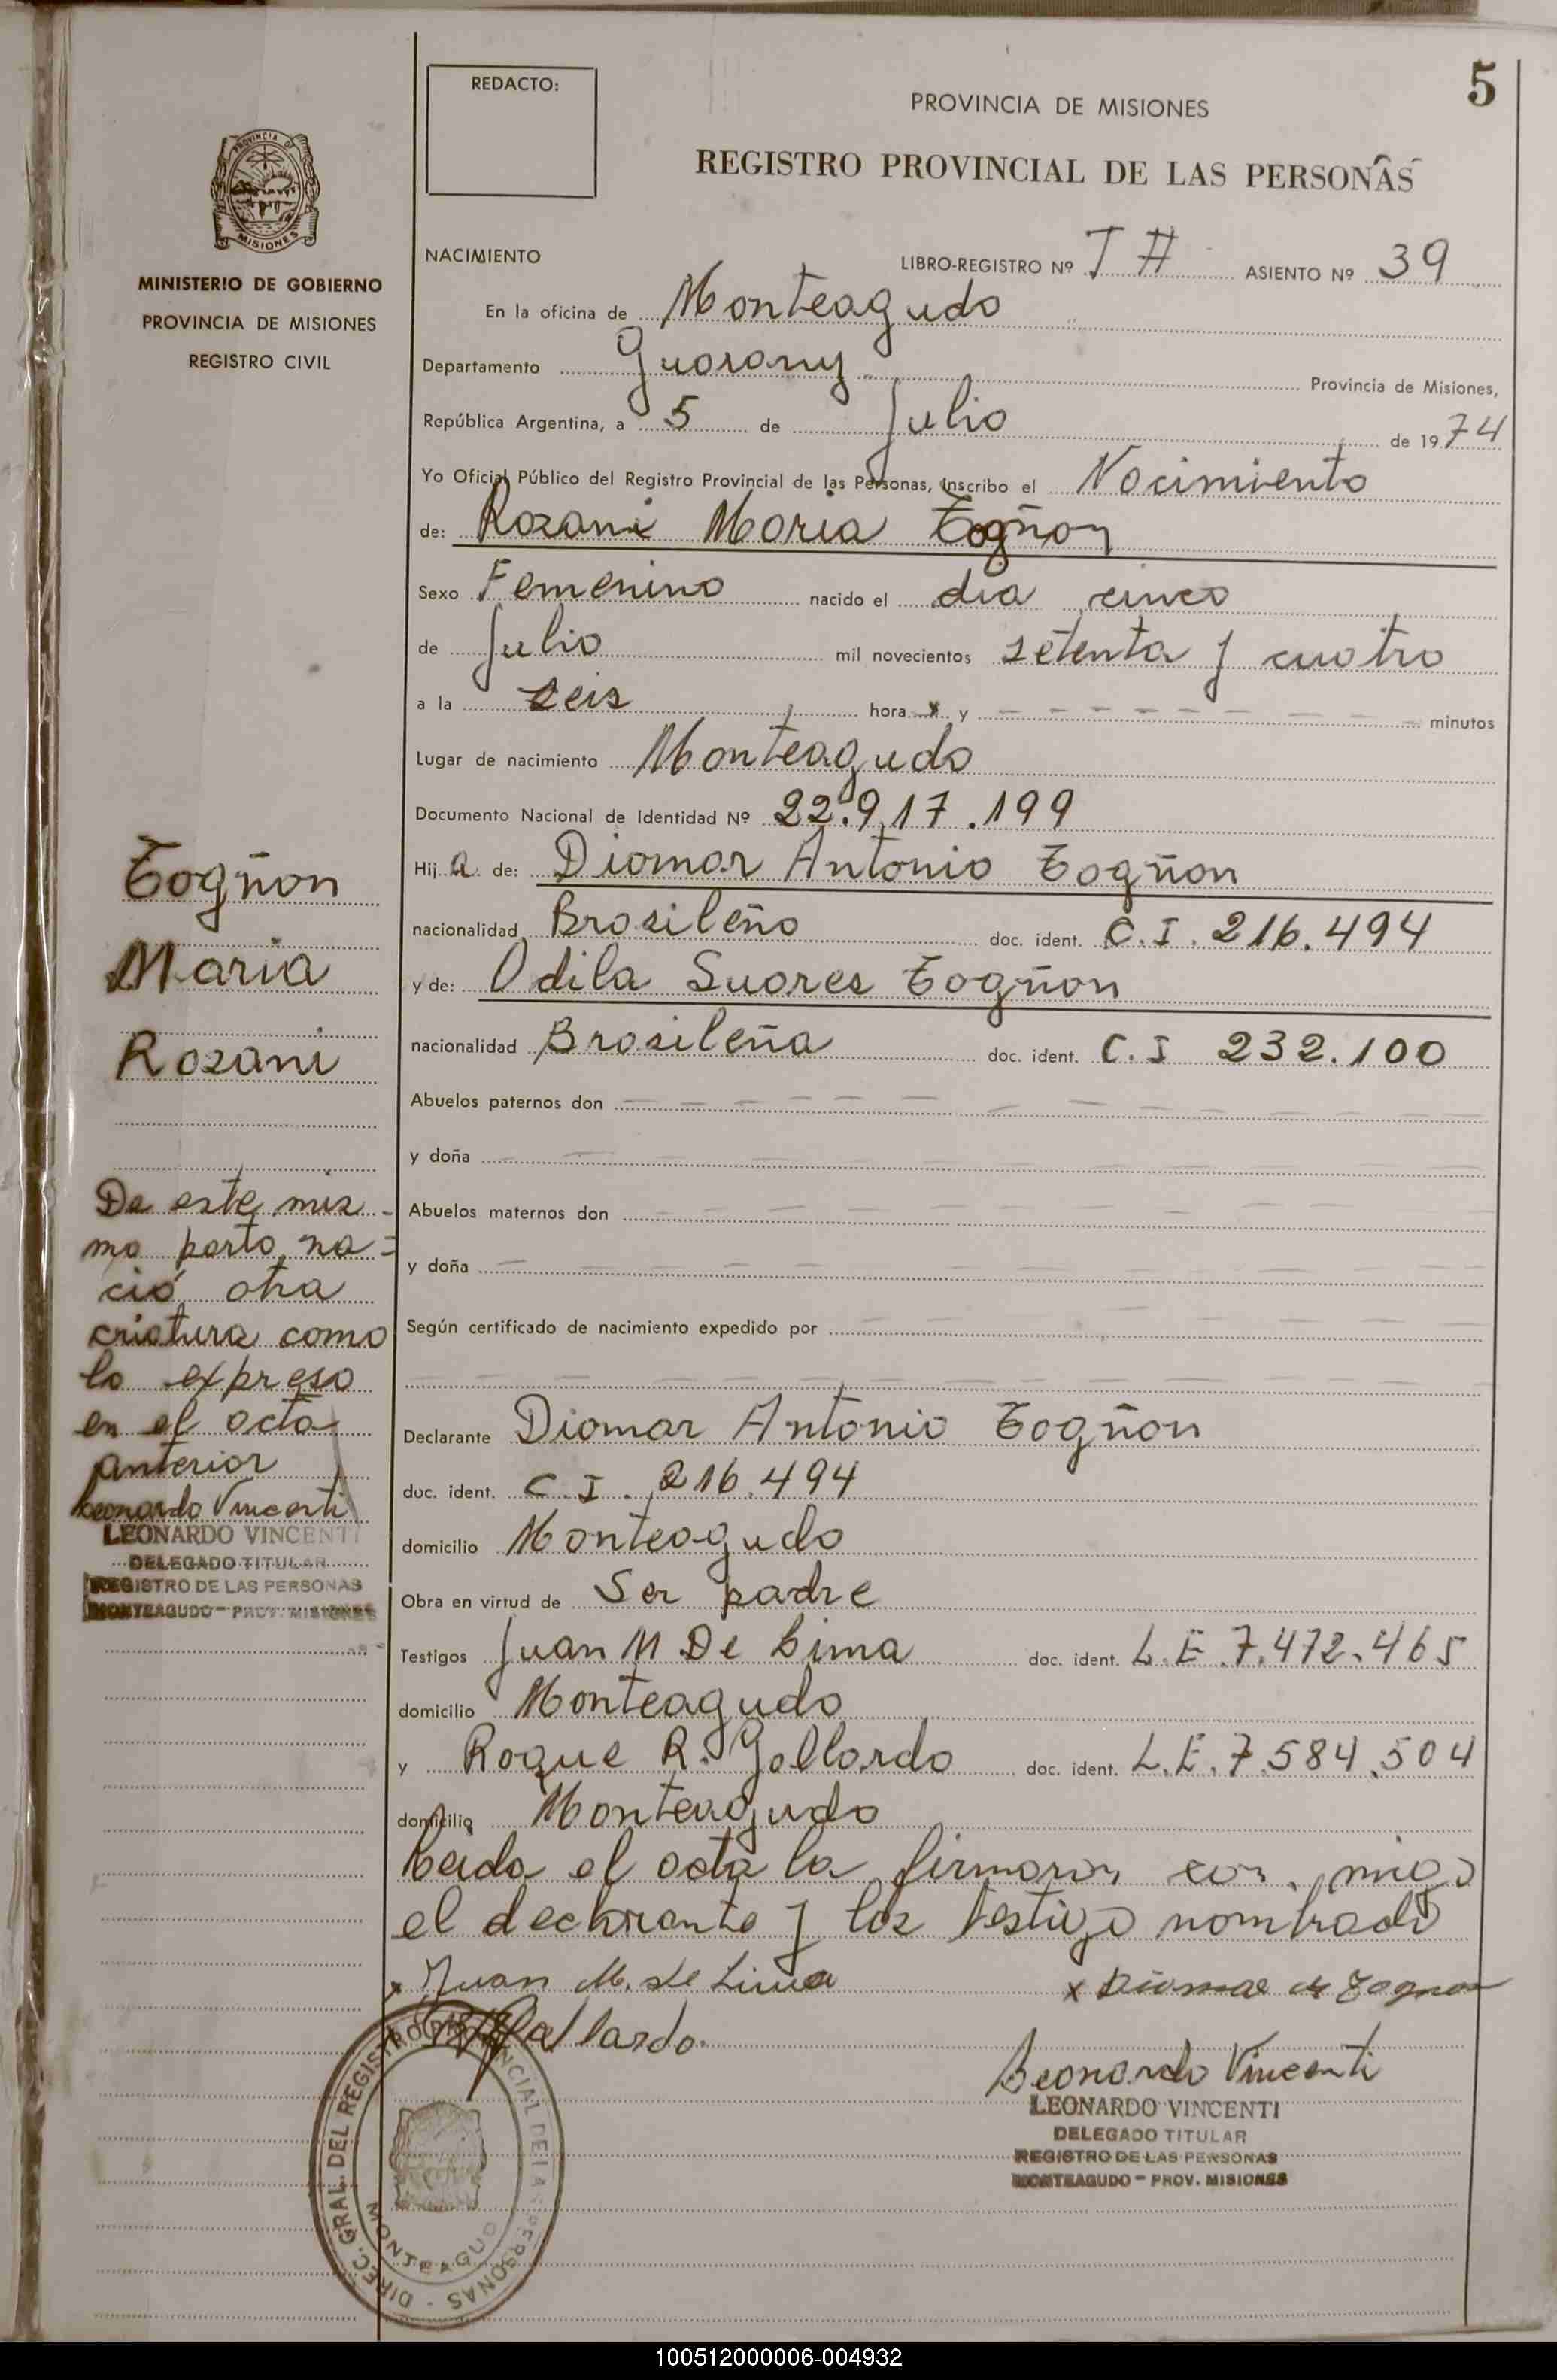 5
REDACTO:
PROVINCIA DE MISIONES
REGISTRO PROVINCIAL DE LAS PERSONAS
PROVINCIA DE
MISIONES
MINISTERIO DE GOBIERNO
PROVINCIA DE MISIONES
REGISTRO CIVIL
NACIMIENTO LIBRO-REGISTRO Nº T # ASIENTO Nº 39
En la oficina de Monteagudo
Departamento Guarany Provincia de Misiones,
República Argentina, a 5 de Julio de 1974
Yo Oficial Público del Registro Provincial de las Personas, inscribo el Nacimiento
de: Rozani Maria Togñon
Sexo Femenino nacido el dia cinco
de Julio mil novecientos setenta y cuatro
a la seis hora s y minutos
Lugar de nacimiento Monteagudo
Documento Nacional de Identidad Nº 22.917.199
Hija de: Diomar Antonio Togñon
nacionalidad Brasileño doc. ident. C.I. 216.494
y de: Odila Suares Togñon
nacionalidad Brasileña doc. ident. C.I 232.100
Abuelos paternos don
y doña
Abuelos maternos don
y doña
Según certificado de nacimiento expedido por
Declarante Diomar Antonio Togñon
doc. ident. C.I. 216.494
domicilio Monteagudo
Obra en virtud de Ser padre
Testigos Juan M De Lima doc. ident. L.E.7.472.465
domicilio Monteagudo
y Roque R. Gallardo doc. ident. L.E.7.584.504
domicilio Monteagudo
Leida el acta la firmaron con migo
el declarante y los testigo nombrado
x Juan M. de Lima x Diomar A Tognon
Gallardo
Leonardo Vincenti
LEONARDO VINCENTI
DELEGADO TITULAR
REGISTRO DE LAS PERSONAS
MONTEAGUDO - PROV. MISIONES
Togñon
Maria
Rozani
De este mis-
mo parto na=
ció otra
criatura como
lo expreso
en el acta
anterior
Leonardo Vincenti
LEONARDO VINCENTI
DELEGADO TITULAR
REGISTRO DE LAS PERSONAS
MONTEAGUDO - PROV. MISIONES
DIREC. GRAL. DEL REGISTRO PROVINCIAL DE LAS PERSONAS
MONTEAGUDO
100512000006-004932